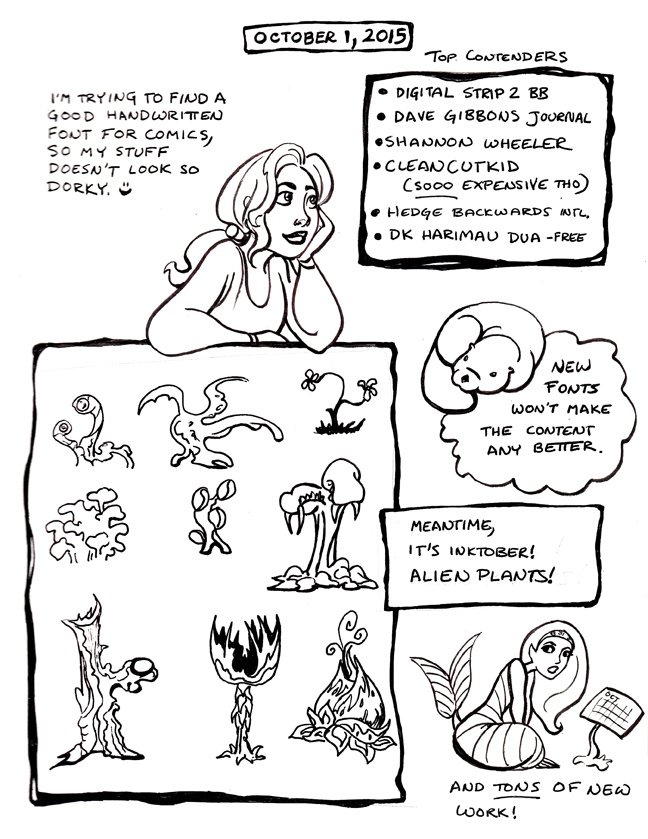 OCTOBER 1, 2015
TOP CONTENDERS
I'M TRYING TO FIND A
GOOD HANDWRITTEN
FONT FOR COMICS,
SO MY STUFF
DOESN'T LOOK SO
DORKY.
• DIGITAL STRIP 2 BB
• DAVE GIBBONS JOURNAL
• SHANNON WHEELER
• CLEANCUTKID
(SOOO EXPENSIVE THO)
• HEDGE BACKWARDS INTL.
• DK HARIMAU DUA -FREE
NEW
FONTS
WON'T MAKE
THE CONTENT
ANY BETTER.
MEANTIME,
IT'S INKTOBER!
ALIEN PLANTS!
OCT
AND TONS OF NEW
WORK!